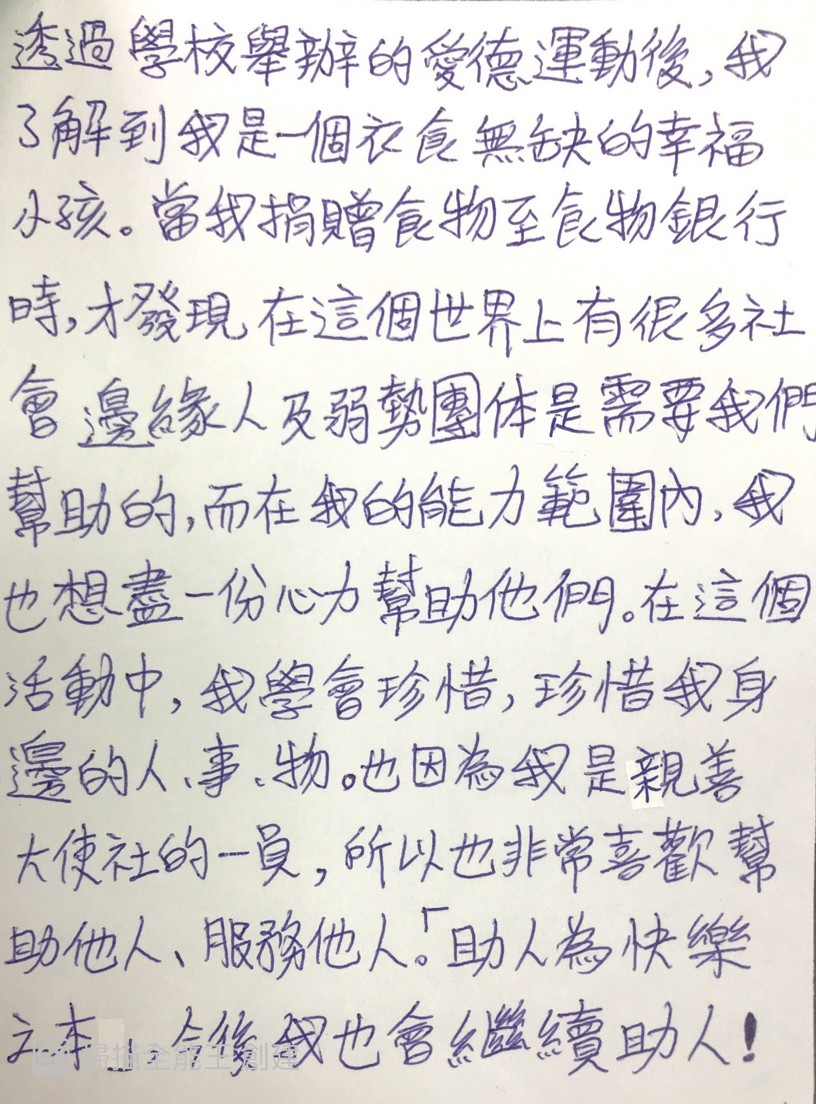 透過學校舉辦的愛德運動後,我
了解到我是一個衣食無缺的幸福
小孩。當我捐贈食物至食物銀行
時,才發現在這個世界上有很多社
會邊緣人及弱勢團体是需要我們
幫助的,而在我的能力範圍內,我
也想盡一份心力幫助他們。在這個
活動中,我學會珍惜,珍惜我身
邊的人、事、物。也因為我是親善
大使社的一員,所以也非常喜歡幫
助他人、服務他人。「助人為快樂
之本」今後我也會繼續助人!
掃描全能王 創建